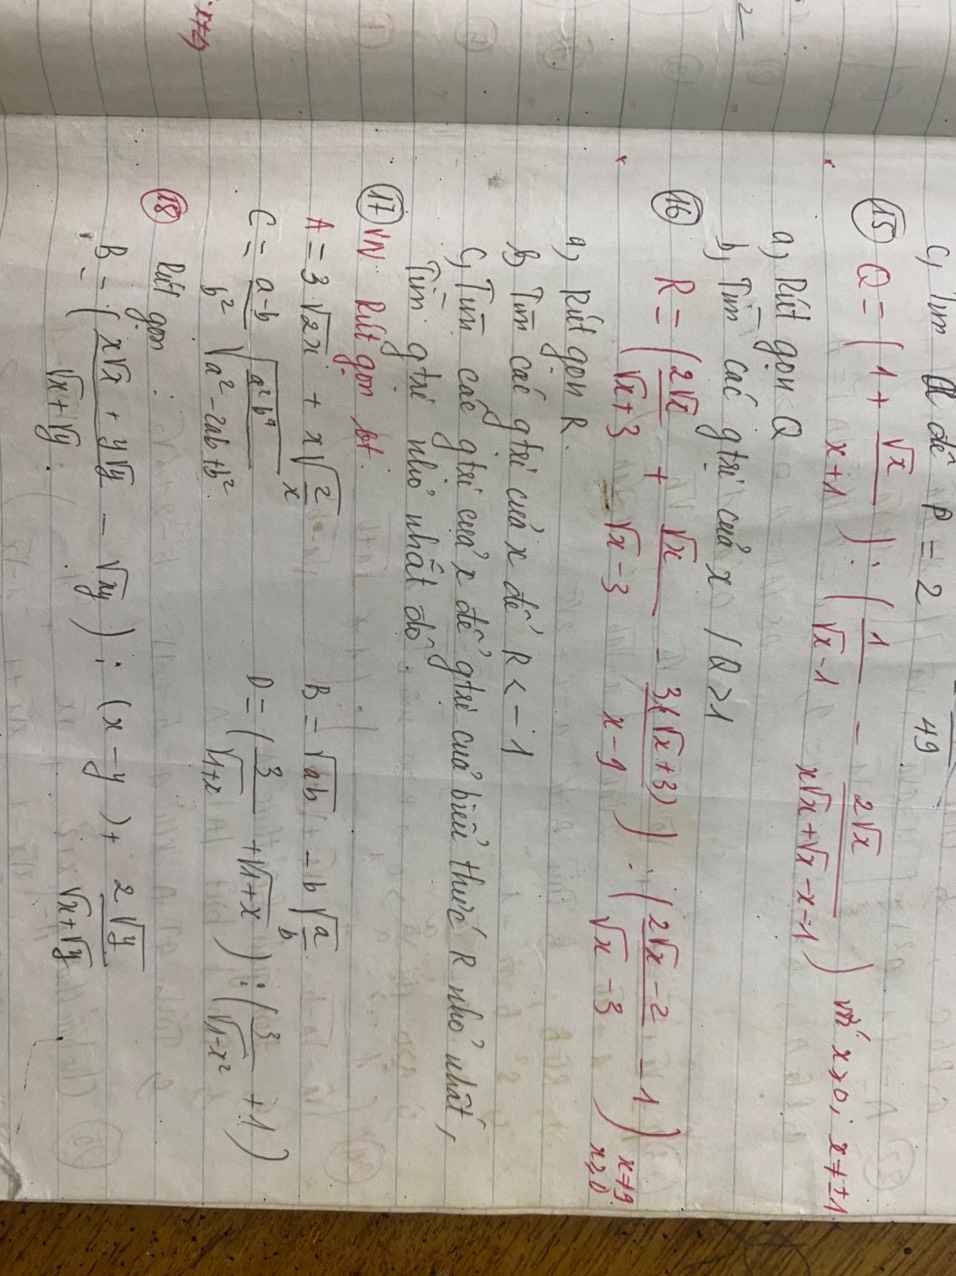 c, Tìm để P = 2
49
(15) Q = (1 + √x/(x+1)) : (1/(√x-1) - 2√x/(x√x+√x-x-1)) với x≥0; x≠±1
a, Rút gọn Q
b, Tìm các gtrị của x / Q>1
(16) R = (2√x/(√x+3) + √x/(√x-3) - 3(√x+3)/(x-9)) : ((2√x-2)/(√x-3) - 1) x≠9 x≥0
a, Rút gọn R.
b, Tìm các gtrị của x để R < -1
c, Tìm các gtrị của x để gtrị của biểu thức R nhỏ nhất,
Tìm gtrị nhỏ nhất đó.
(17) VN. Rút gọn bt.
A = 3√2x + x√(2/x) B = √ab - b√(a/b)
C = (a-b)/b² √(a²b⁴/(a²-2ab+b²)) D = (3/√(1+x) + √(1+x)) : (3/√(1-x²) + 1)
(18) Rút gọn
B = ((x√x + y√y)/(√x+√y) - √xy) : (x-y) + 2√y/(√x+√y)